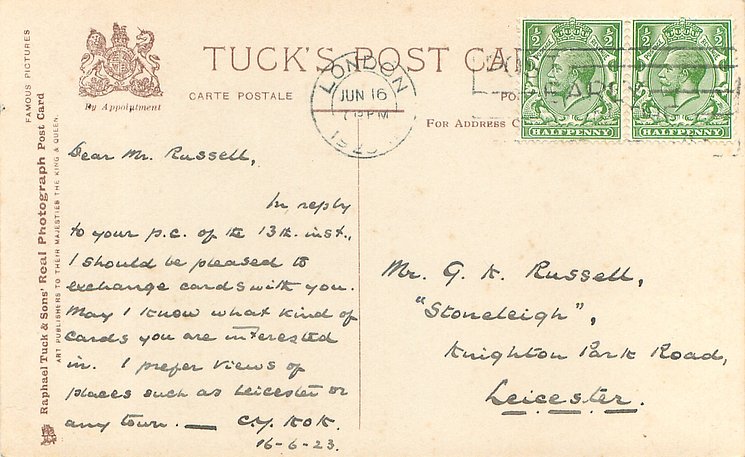 FAMOUS PICTURES
Raphael Tuck & Sons' Real Photograph Post Card
ART PUBLISHERS TO THEIR MAJESTIES THE KING & QUEEN.
By Appointment
TUCK'S POST CA
CARTE POSTALE
PO
FOR ADDRESS
LONDON
JUN 16
PM
1923
1/2 1/2
HALFPENNY
1/2 1/2
HALFPENNY
Dear Mr. Russell,
In reply
to your p.c. of the 13th. inst.,
I should be pleased to
exchange cards with you.
May I know what kind of
cards you are interested
in. I prefer views of
places such as Leicester or
any town. — C.Y. KOK.
16-6-23.
Mr. G. K. Russell,
"Stoneleigh",
Knighton Park Road,
Leicester.